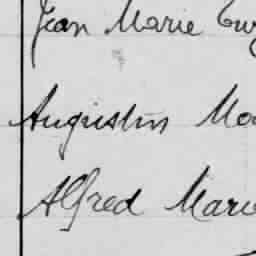 Jean Marie
Augustin
Alfred Marie